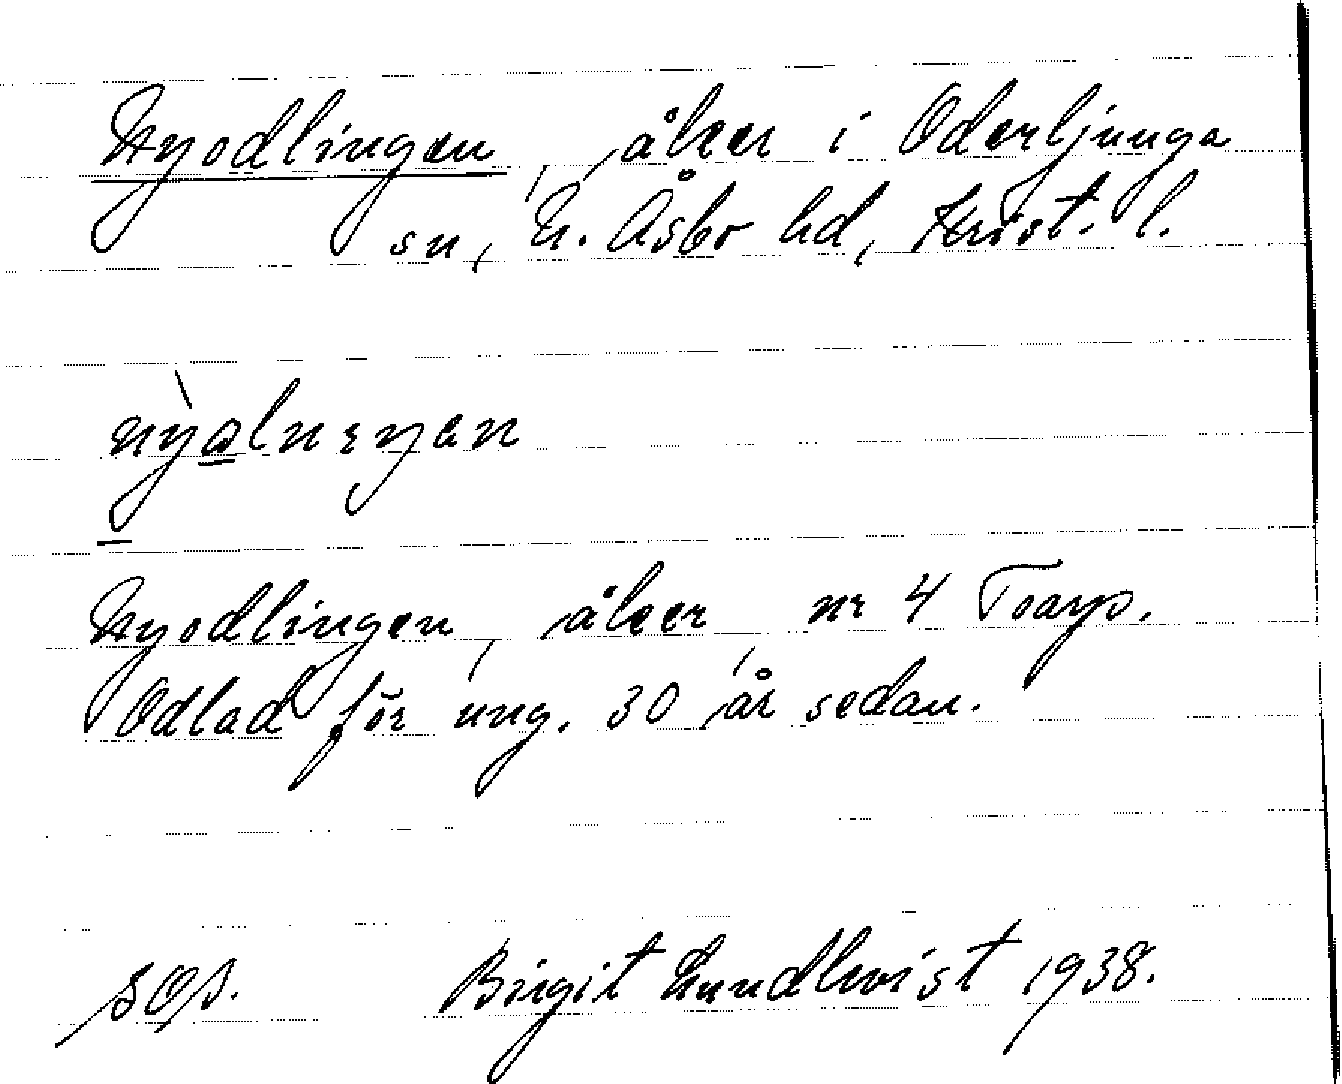 Nyodlingen, åker i Oderljunga
sn, N. Åsbo hd, Krist. l.
nỳalnεŋan
Nyodlingen, åker, nr 4 Toarp.
Odlad för ung. 30 år sedan.
SOS. Birgit Lundkvist 1938.